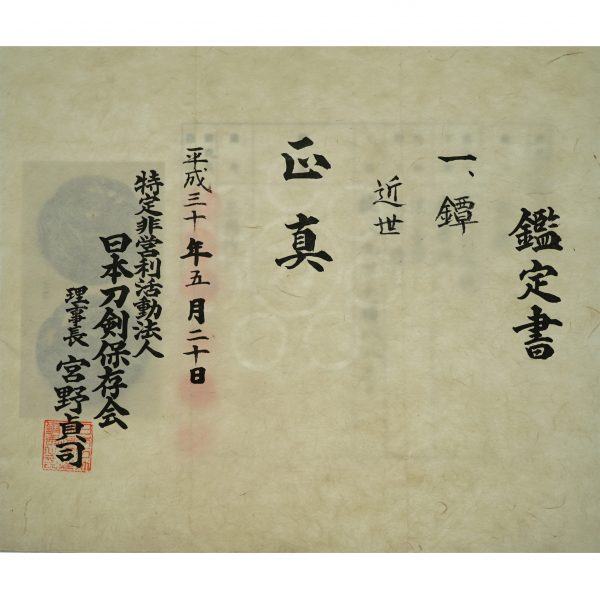 鑑定書
一、鐔
近世
正真
平成三十年五月二十日
特定非営利活動法人
日本刀剣保存会
理事長 宮野貞司